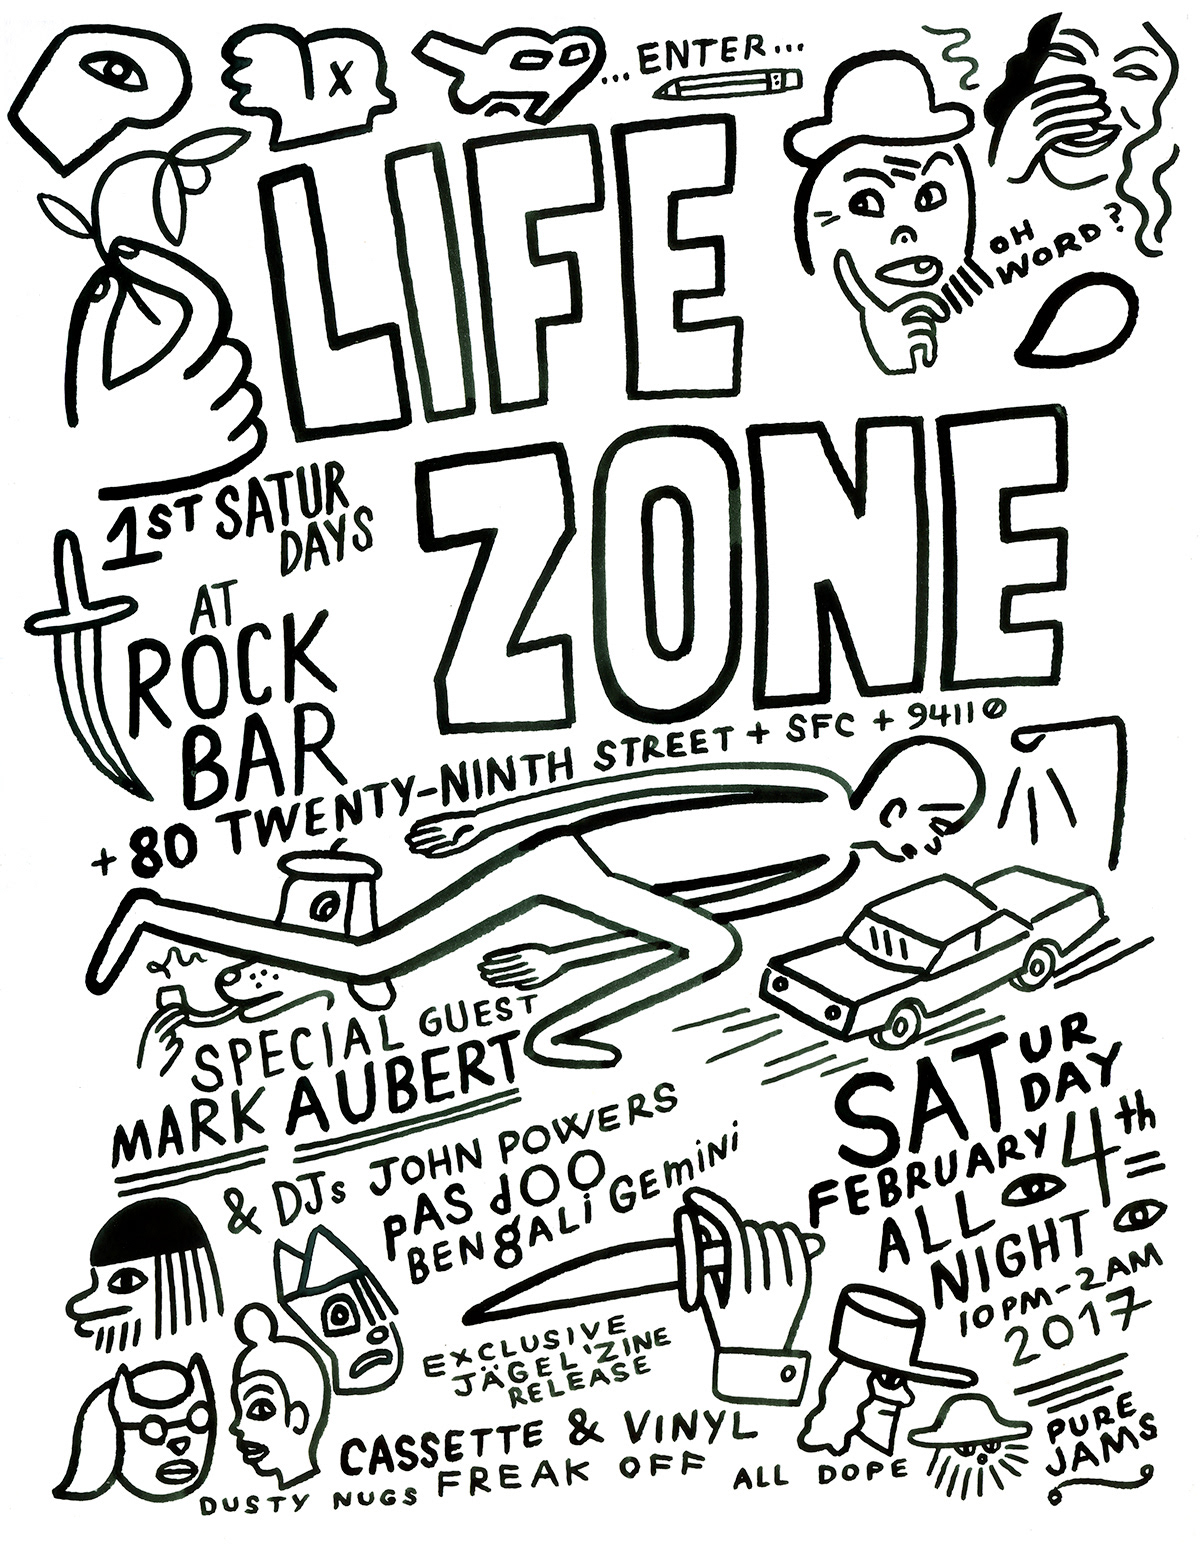 X
...ENTER...
LIFE
ZONE
OH
WORD?
1ST SATUR
DAYS
AT
ROCK
BAR
+ 80 TWENTY-NINTH STREET + SFC + 94110
SPECIAL GUEST
MARK AUBERT
& DJs JOHN POWERS
PAS dOO
BENgALi GEMiNi
SATUR
DAY
FEBRUARY 4th
ALL
NIGHT
10PM-2AM
2017
EXCLUSIVE
JÄGEL 'ZINE
RELEASE
CASSETTE & VINYL
FREAK OFF
DUSTY NUGS
ALL DOPE
PURE
JAMS